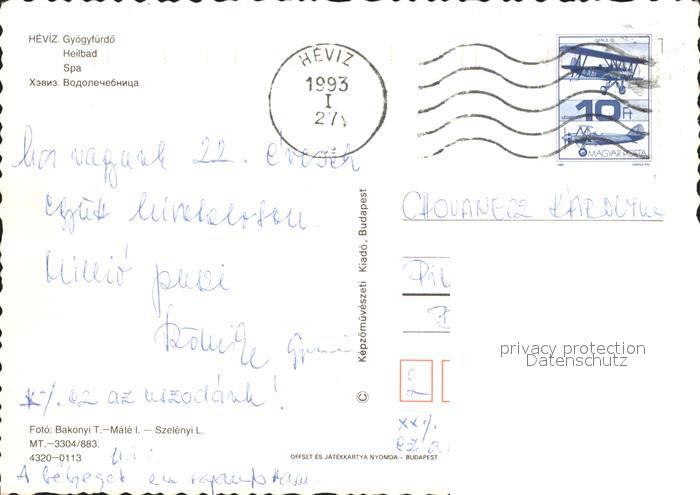 HÉVÍZ. Gyógyfürdő
Heilbad
Spa
Хэвиз. Водолечебница
HÉVÍZ
1993
I
27
10 Ft
MAGYAR POSTA
vagyunk 22. évesek
együtt
Millió puszi
CHOVANECZ KÁROLYNE
Pil
© Képzőművészeti Kiadó, Budapest
privacy protection
Datenschutz
x-/. ez az uszodánk!
2
xx/.
ez a
Fotó: Bakonyi T.–Máté I. – Szelényi L.
MT.–3304/883.
4320–0113
OFFSET ÉS JÁTÉKKARTYA NYOMDA – BUDAPEST
A bélyeget én ragasztottam.